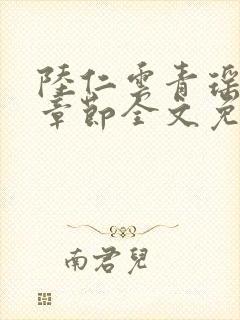 陸仁雲青瑶
章節全文免
南君兒